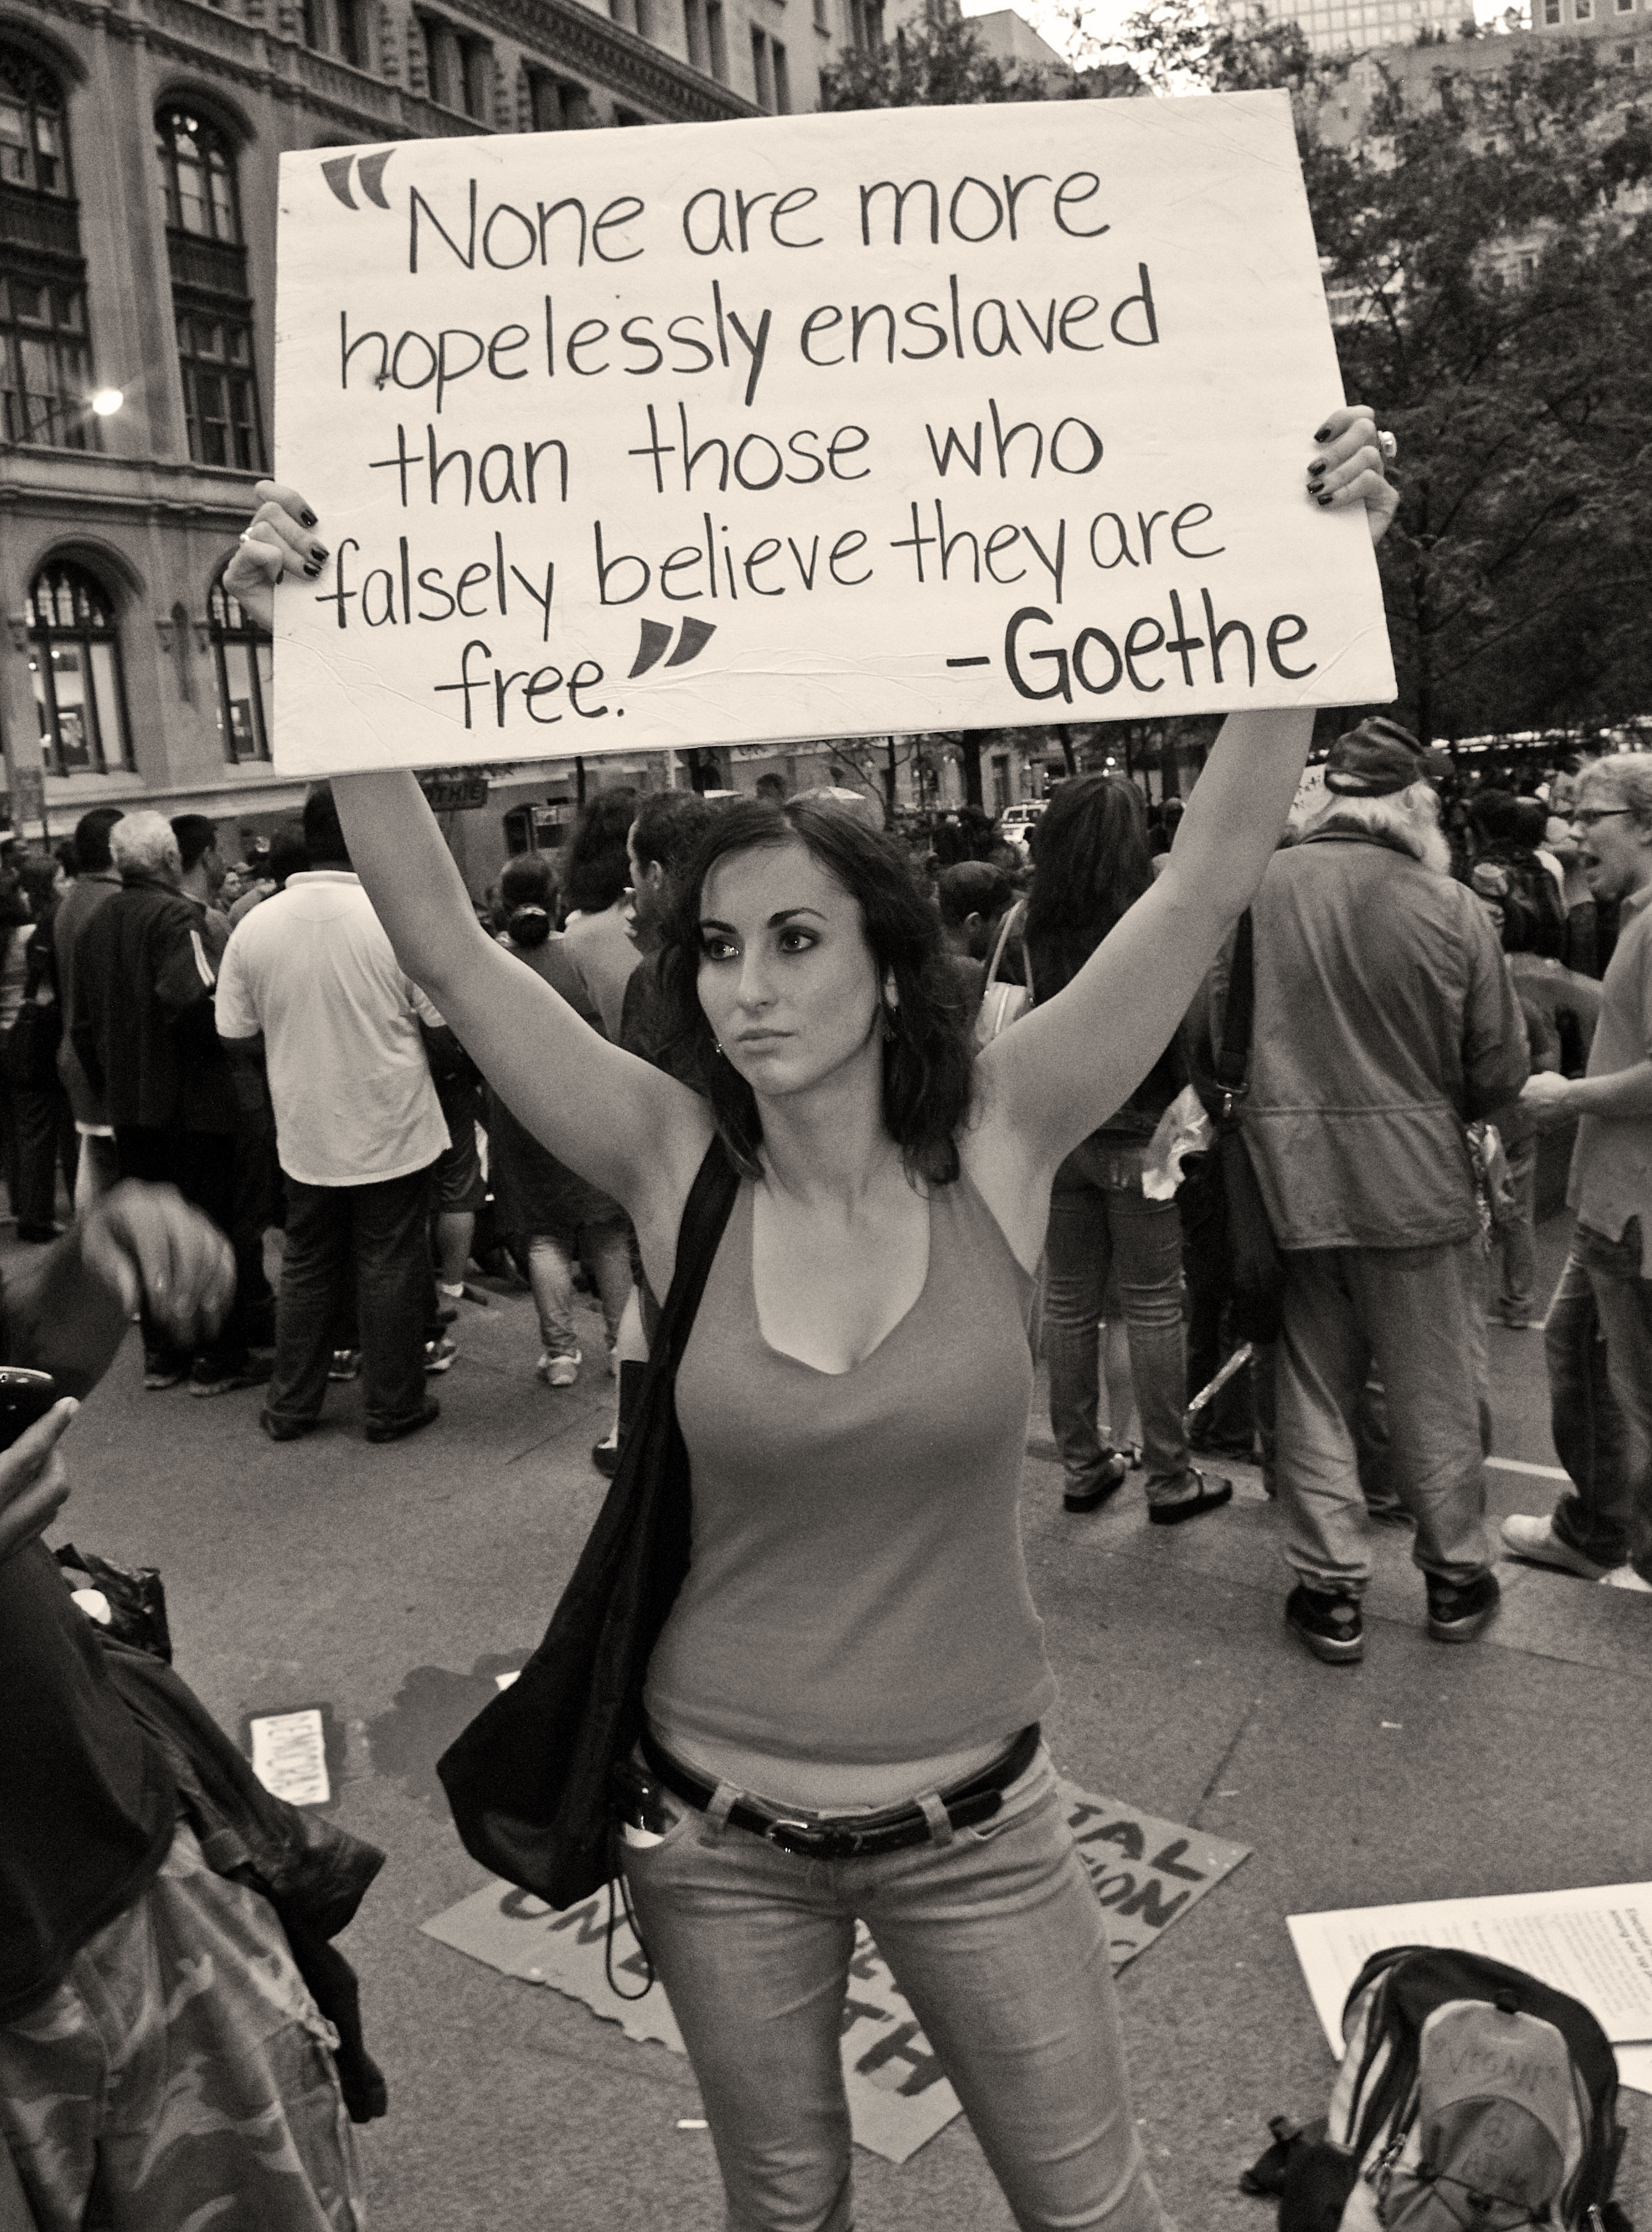 “None are more
hopelessly enslaved
than those who
falsely believe they are
free.” -Goethe
TAL